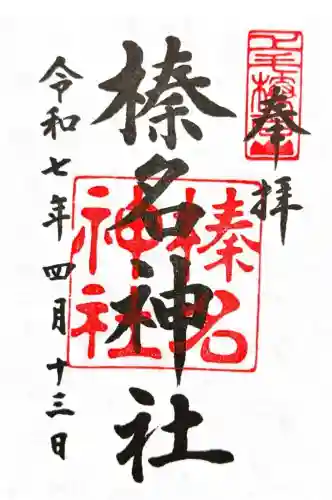 奉拝
上毛榛名山
榛名神社
榛名神社
令和七年四月十三日